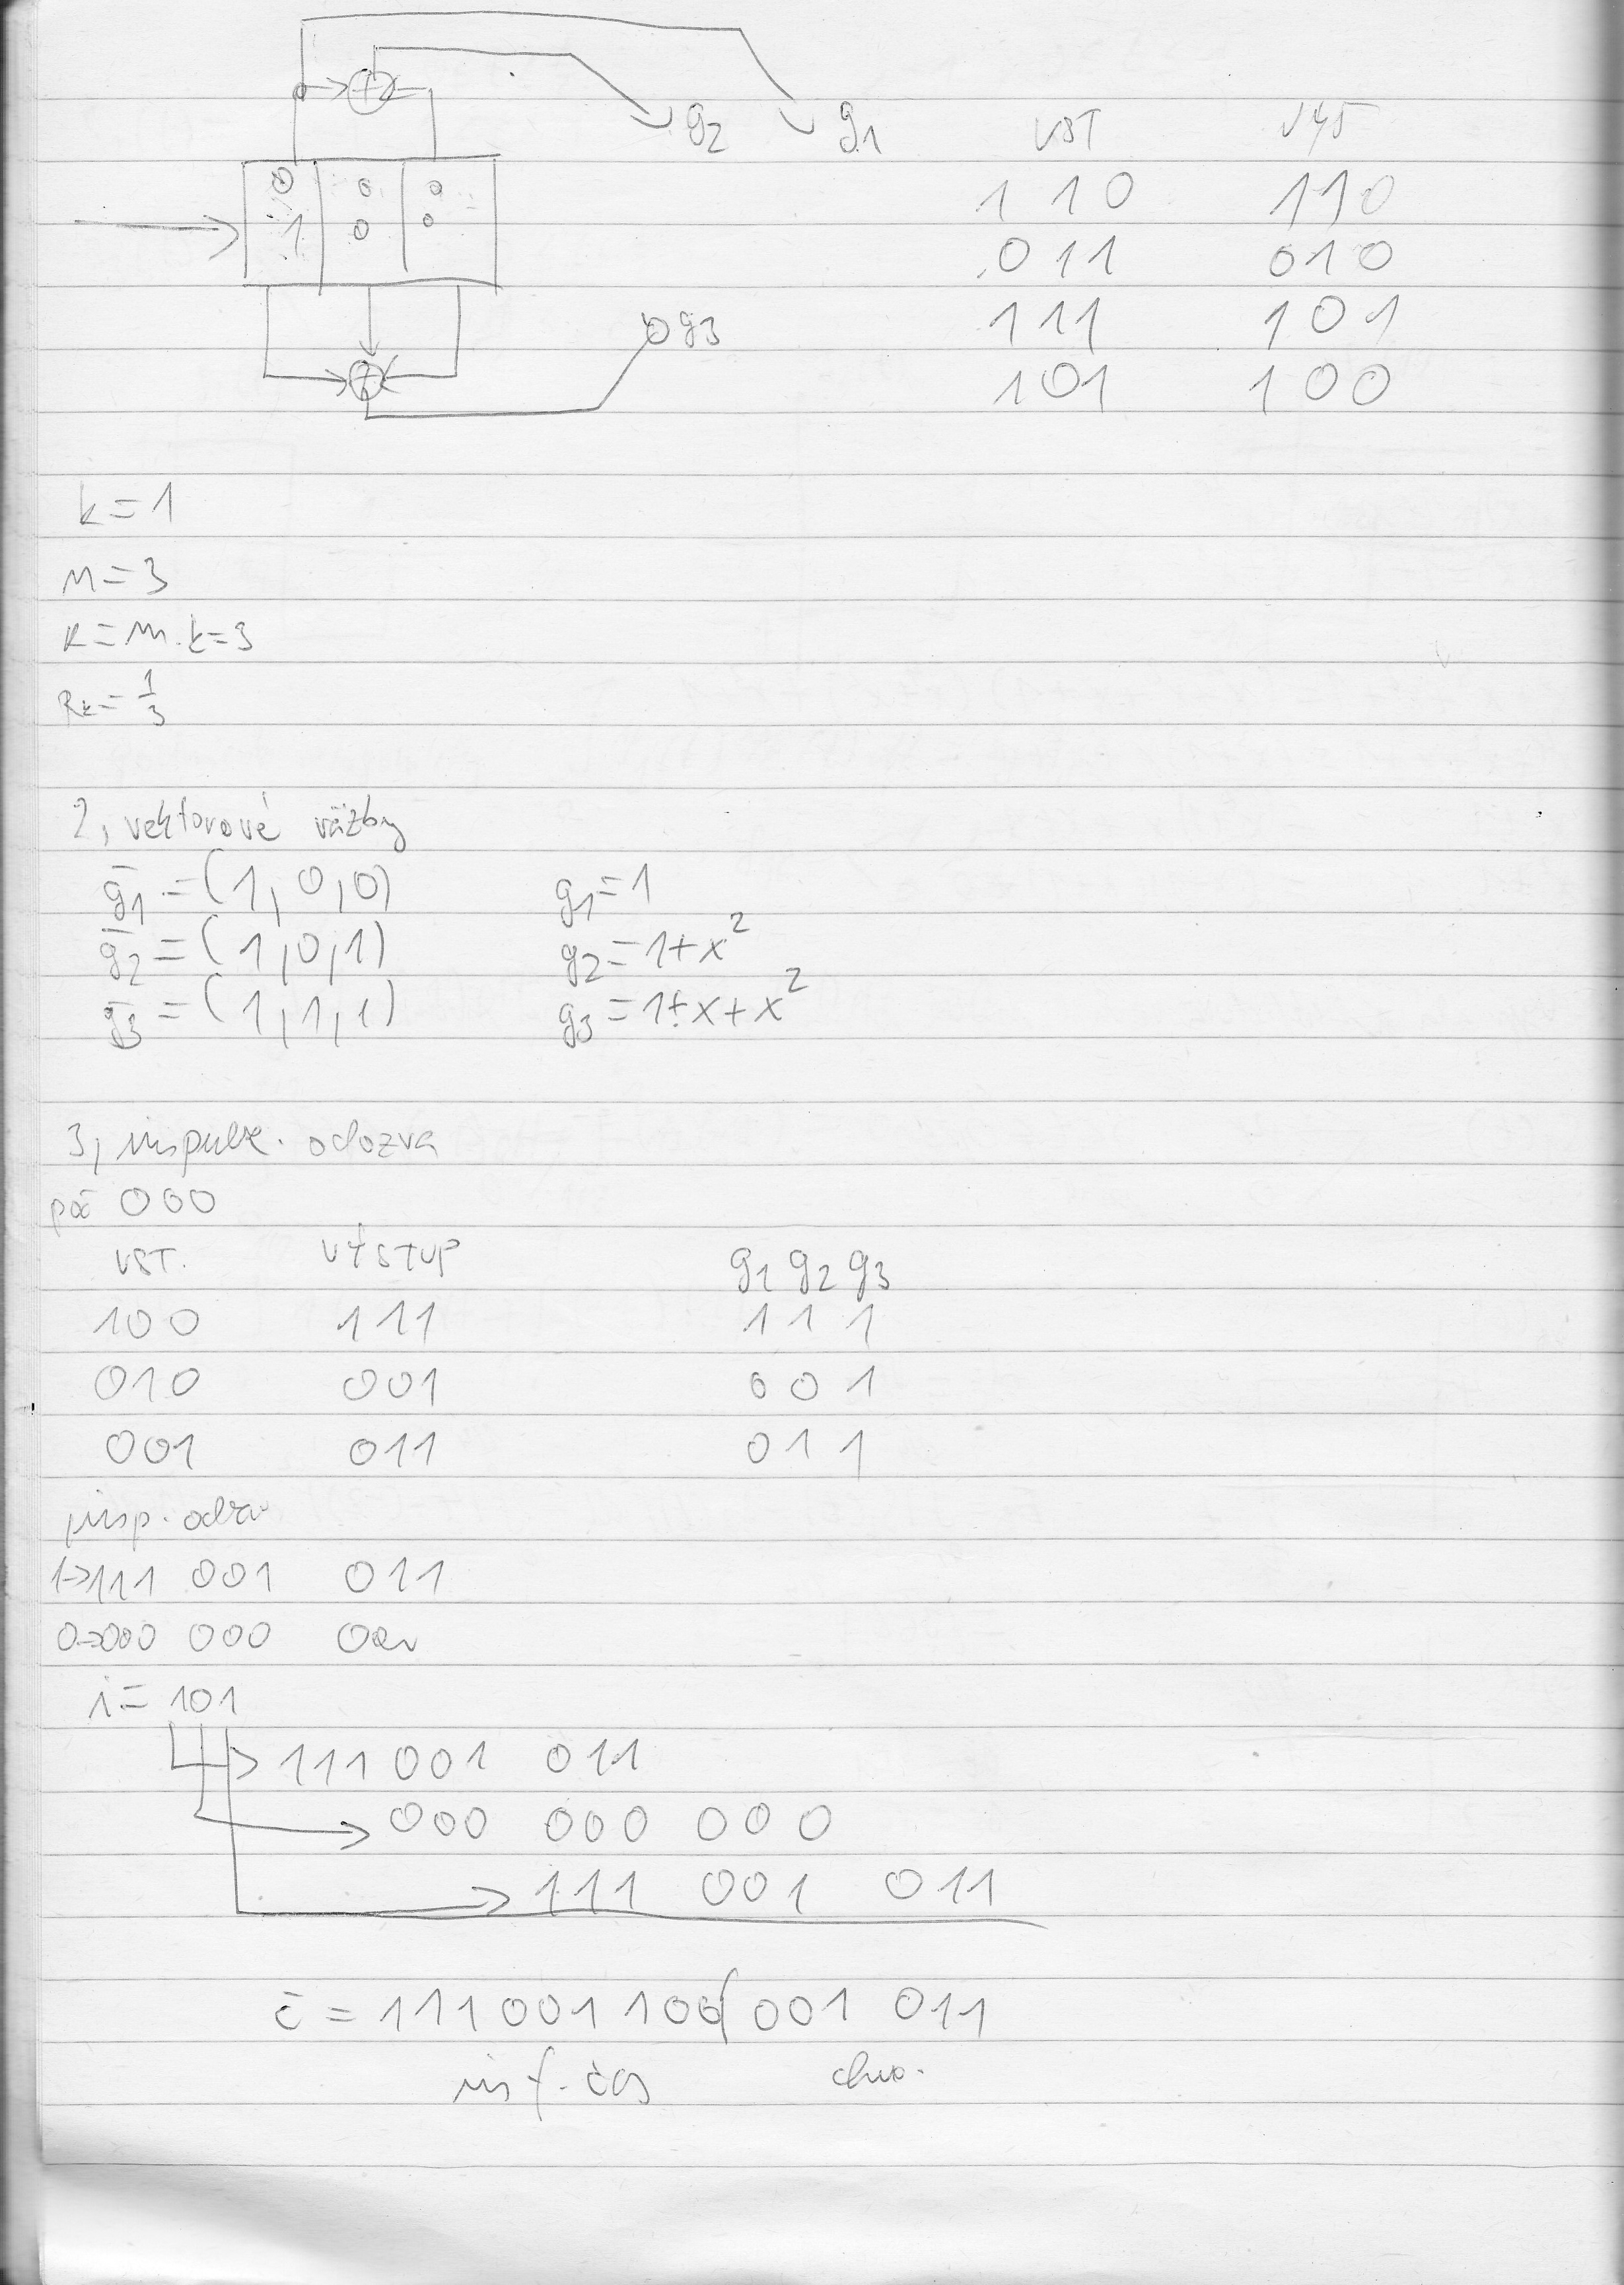 g2 g1 VST VÝS
0 0 0 110 110
1 0 0 011 010
g3 111 101
101 100
k=1
n=3
K=m.k=3
Rk=1/3
2, vektorové väzby
ḡ1=(1,0,0) g1=1
ḡ2=(1,0,1) g2=1+x²
ḡ3=(1,1,1) g3=1+x+x²
3, impulz. odozva
poč 000
VST. VÝSTUP g1 g2 g3
100 111 1 1 1
010 001 0 0 1
001 011 0 1 1
imp. odzv
1→111 001 011
0→000 000 000
i=101
111 001 011
000 000 000
111 001 011
c̄=111001100/001 011
inf. čas chvo.